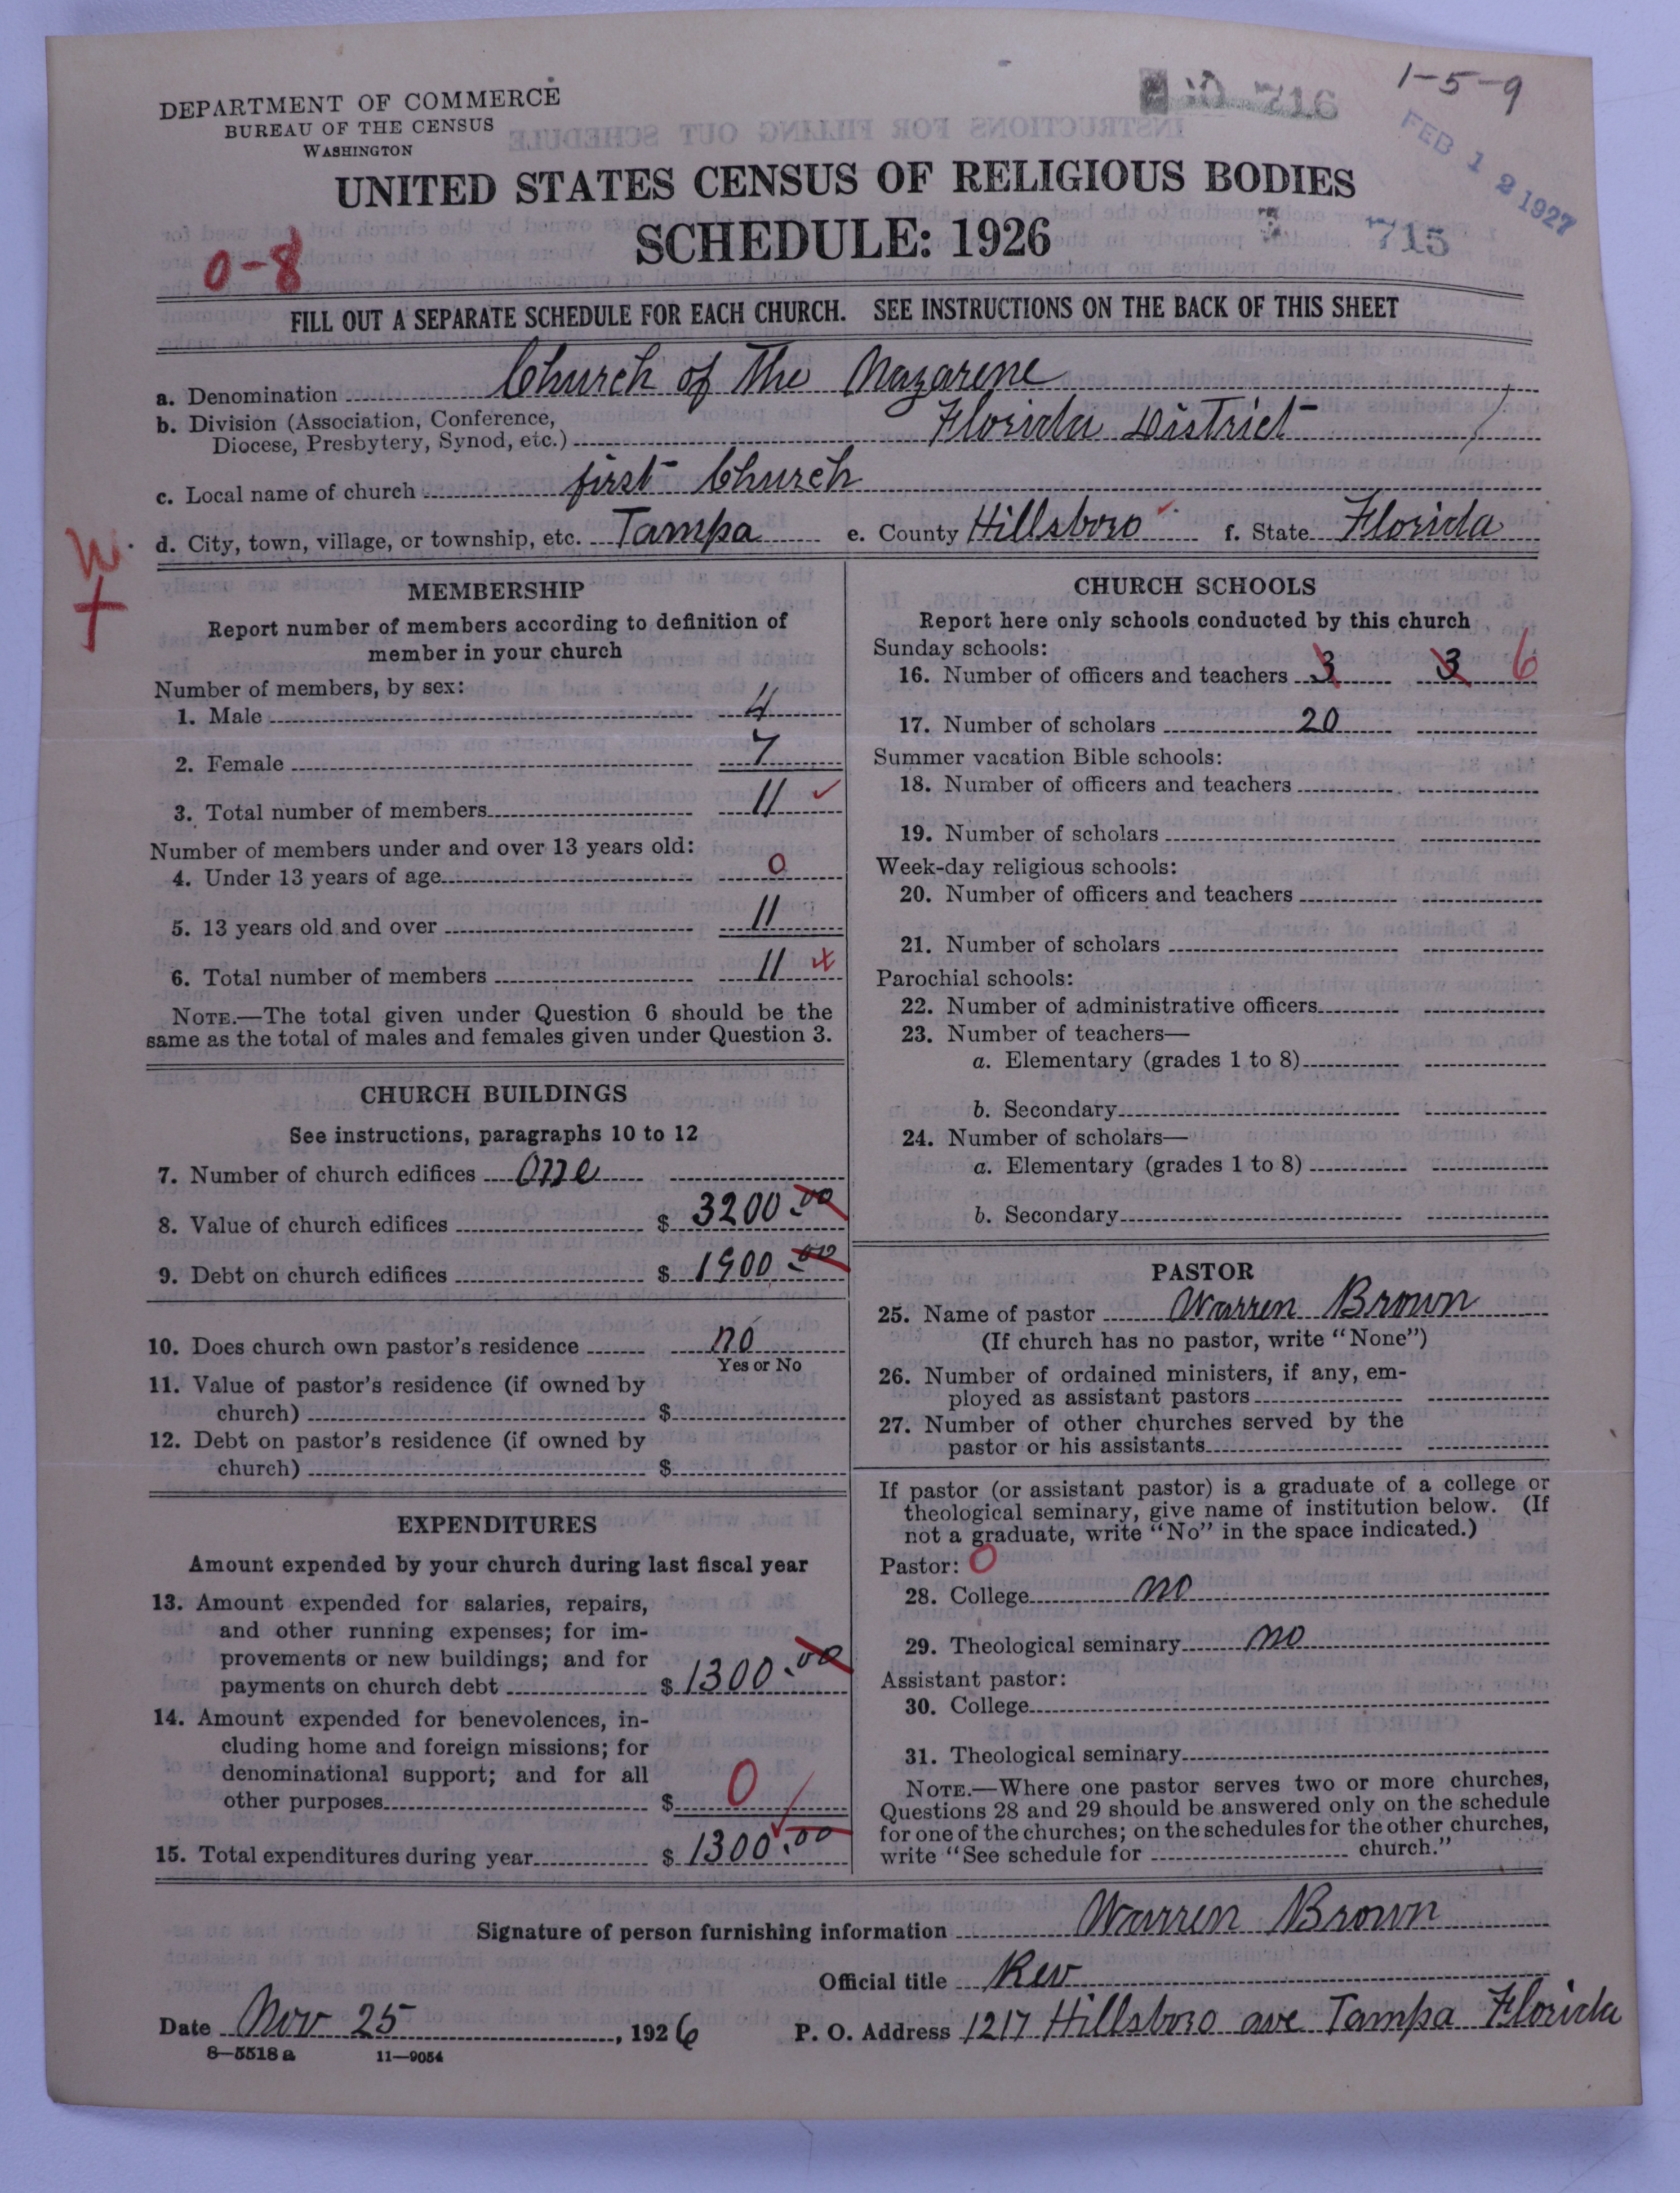 1-5-9
DEPARTMENT OF COMMERCE
BUREAU OF THE CENSUS
WASHINGTON
FEB 12 1927
UNITED STATES CENSUS OF RELIGIOUS BODIES
SCHEDULE: 1926
715
0-8
FILL OUT A SEPARATE SCHEDULE FOR EACH CHURCH. SEE INSTRUCTIONS ON THE BACK OF THIS SHEET
a. Denomination Church of The Nazarene
b. Division (Association, Conference,
Diocese, Presbytery, Synod, etc.) Florida District
c. Local name of church first Church
d. City, town, village, or township, etc. Tampa e. County Hillsboro f. State Florida
W.
MEMBERSHIP
Report number of members according to definition of
member in your church
Number of members, by sex:
1. Male 4
2. Female 7
3. Total number of members 11
Number of members under and over 13 years old:
4. Under 13 years of age 0
5. 13 years old and over 11
6. Total number of members 11
NOTE.—The total given under Question 6 should be the
same as the total of males and females given under Question 3.
CHURCH BUILDINGS
See instructions, paragraphs 10 to 12
7. Number of church edifices One
8. Value of church edifices $ 3200.00
9. Debt on church edifices $ 1900.00
10. Does church own pastor's residence no
Yes or No
11. Value of pastor's residence (if owned by
church) $
12. Debt on pastor's residence (if owned by
church) $
EXPENDITURES
Amount expended by your church during last fiscal year
13. Amount expended for salaries, repairs,
and other running expenses; for im-
provements or new buildings; and for
payments on church debt $ 1300.00
14. Amount expended for benevolences, in-
cluding home and foreign missions; for
denominational support; and for all
other purposes $ 0
15. Total expenditures during year $ 1300.00
CHURCH SCHOOLS
Report here only schools conducted by this church
Sunday schools:
16. Number of officers and teachers 3 3 6
17. Number of scholars 20
Summer vacation Bible schools:
18. Number of officers and teachers
19. Number of scholars
Week-day religious schools:
20. Number of officers and teachers
21. Number of scholars
Parochial schools:
22. Number of administrative officers
23. Number of teachers—
a. Elementary (grades 1 to 8)
b. Secondary
24. Number of scholars—
a. Elementary (grades 1 to 8)
b. Secondary
PASTOR
25. Name of pastor Warren Brown
(If church has no pastor, write "None")
26. Number of ordained ministers, if any, em-
ployed as assistant pastors
27. Number of other churches served by the
pastor or his assistants
If pastor (or assistant pastor) is a graduate of a college or
theological seminary, give name of institution below. (If
not a graduate, write "No" in the space indicated.)
Pastor: 0
28. College no
29. Theological seminary no
Assistant pastor:
30. College
31. Theological seminary
NOTE.—Where one pastor serves two or more churches,
Questions 28 and 29 should be answered only on the schedule
for one of the churches; on the schedules for the other churches,
write "See schedule for church."
Signature of person furnishing information Warren Brown
Official title Rev
Date Nov 25, 1926 P. O. Address 1217 Hillsboro ave Tampa Florida
8—5518 a 11—9054